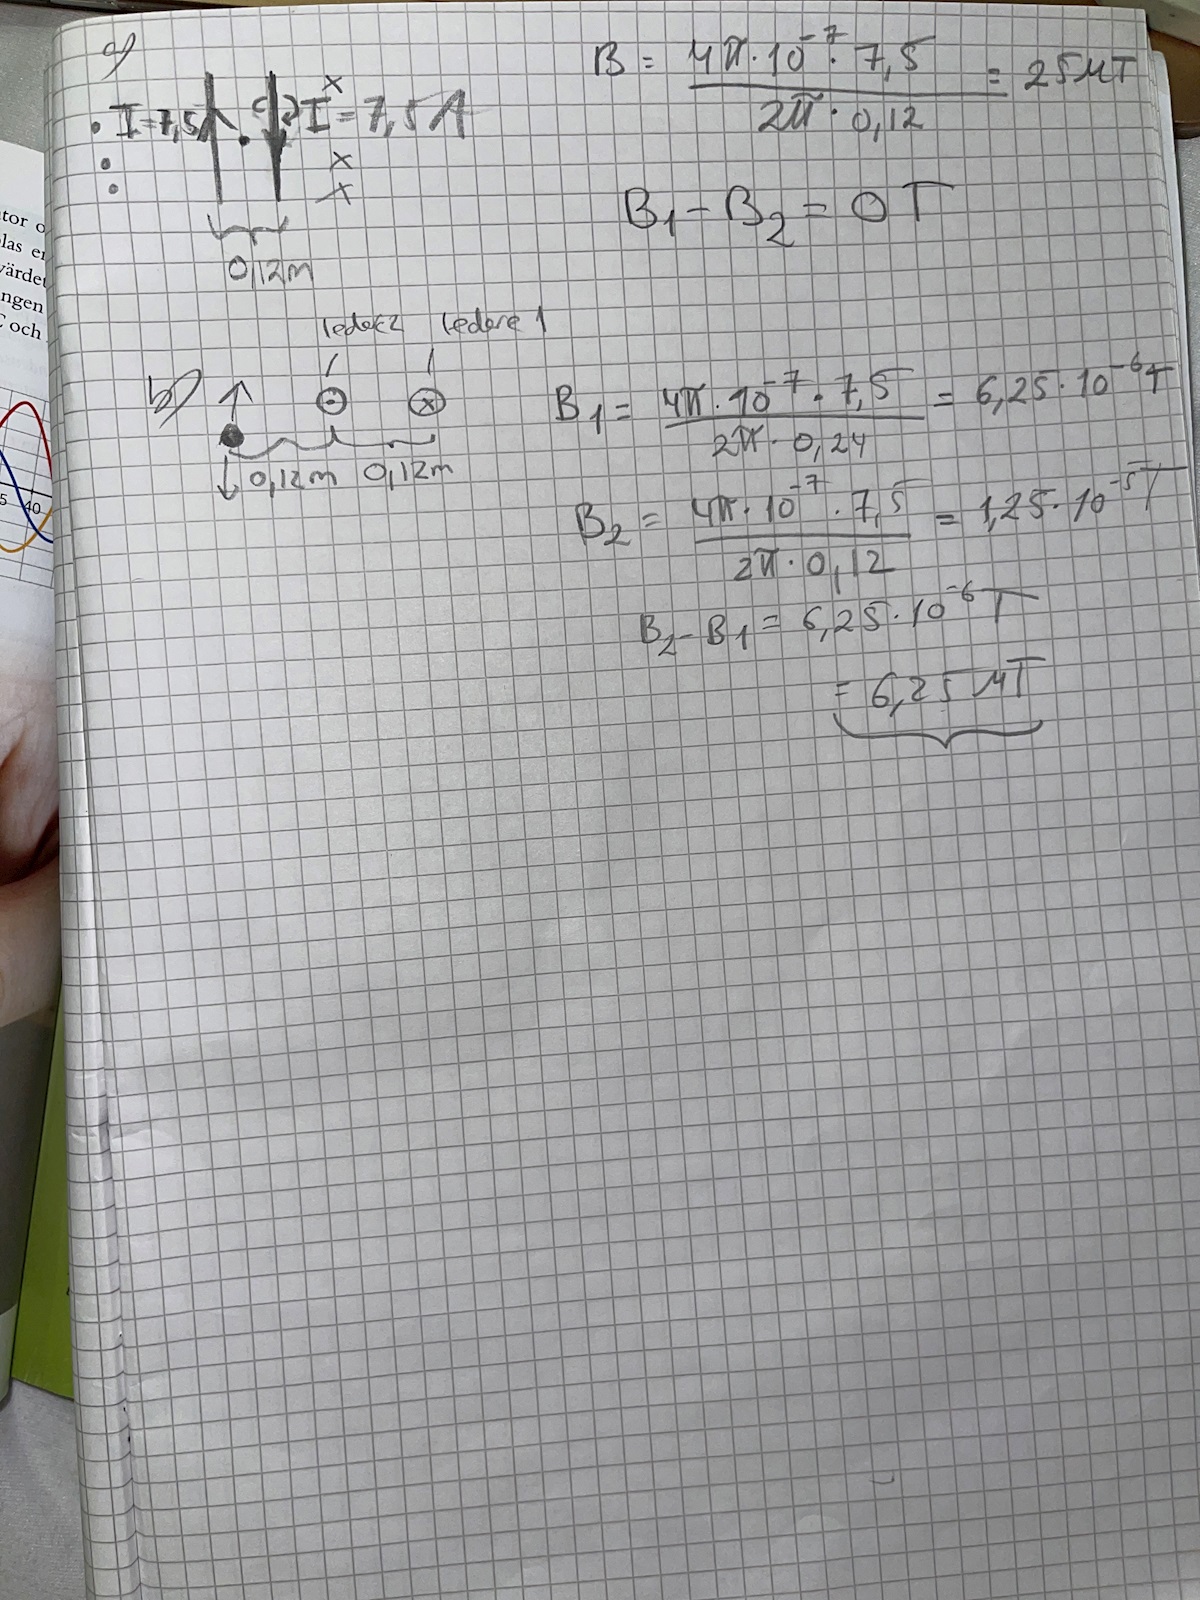 tor o
las er
värdet
ngen
C och
5 40
a)
I=7,5A I=7,5A
0,12m
B = 4π·10^-7·7,5 / 2π·0,12 = 25μT
B₁-B₂=0T
ledare 1
b) 0,12m 0,12m
B₁ = 4π·10^-7·7,5 / 2π·0,24 = 6,25·10^-6T
B₂ = 4π·10^-7·7,5 / 2π·0,12 = 1,25·10^-5T
B₂-B₁ = 6,25·10^-6T
= 6,25μT